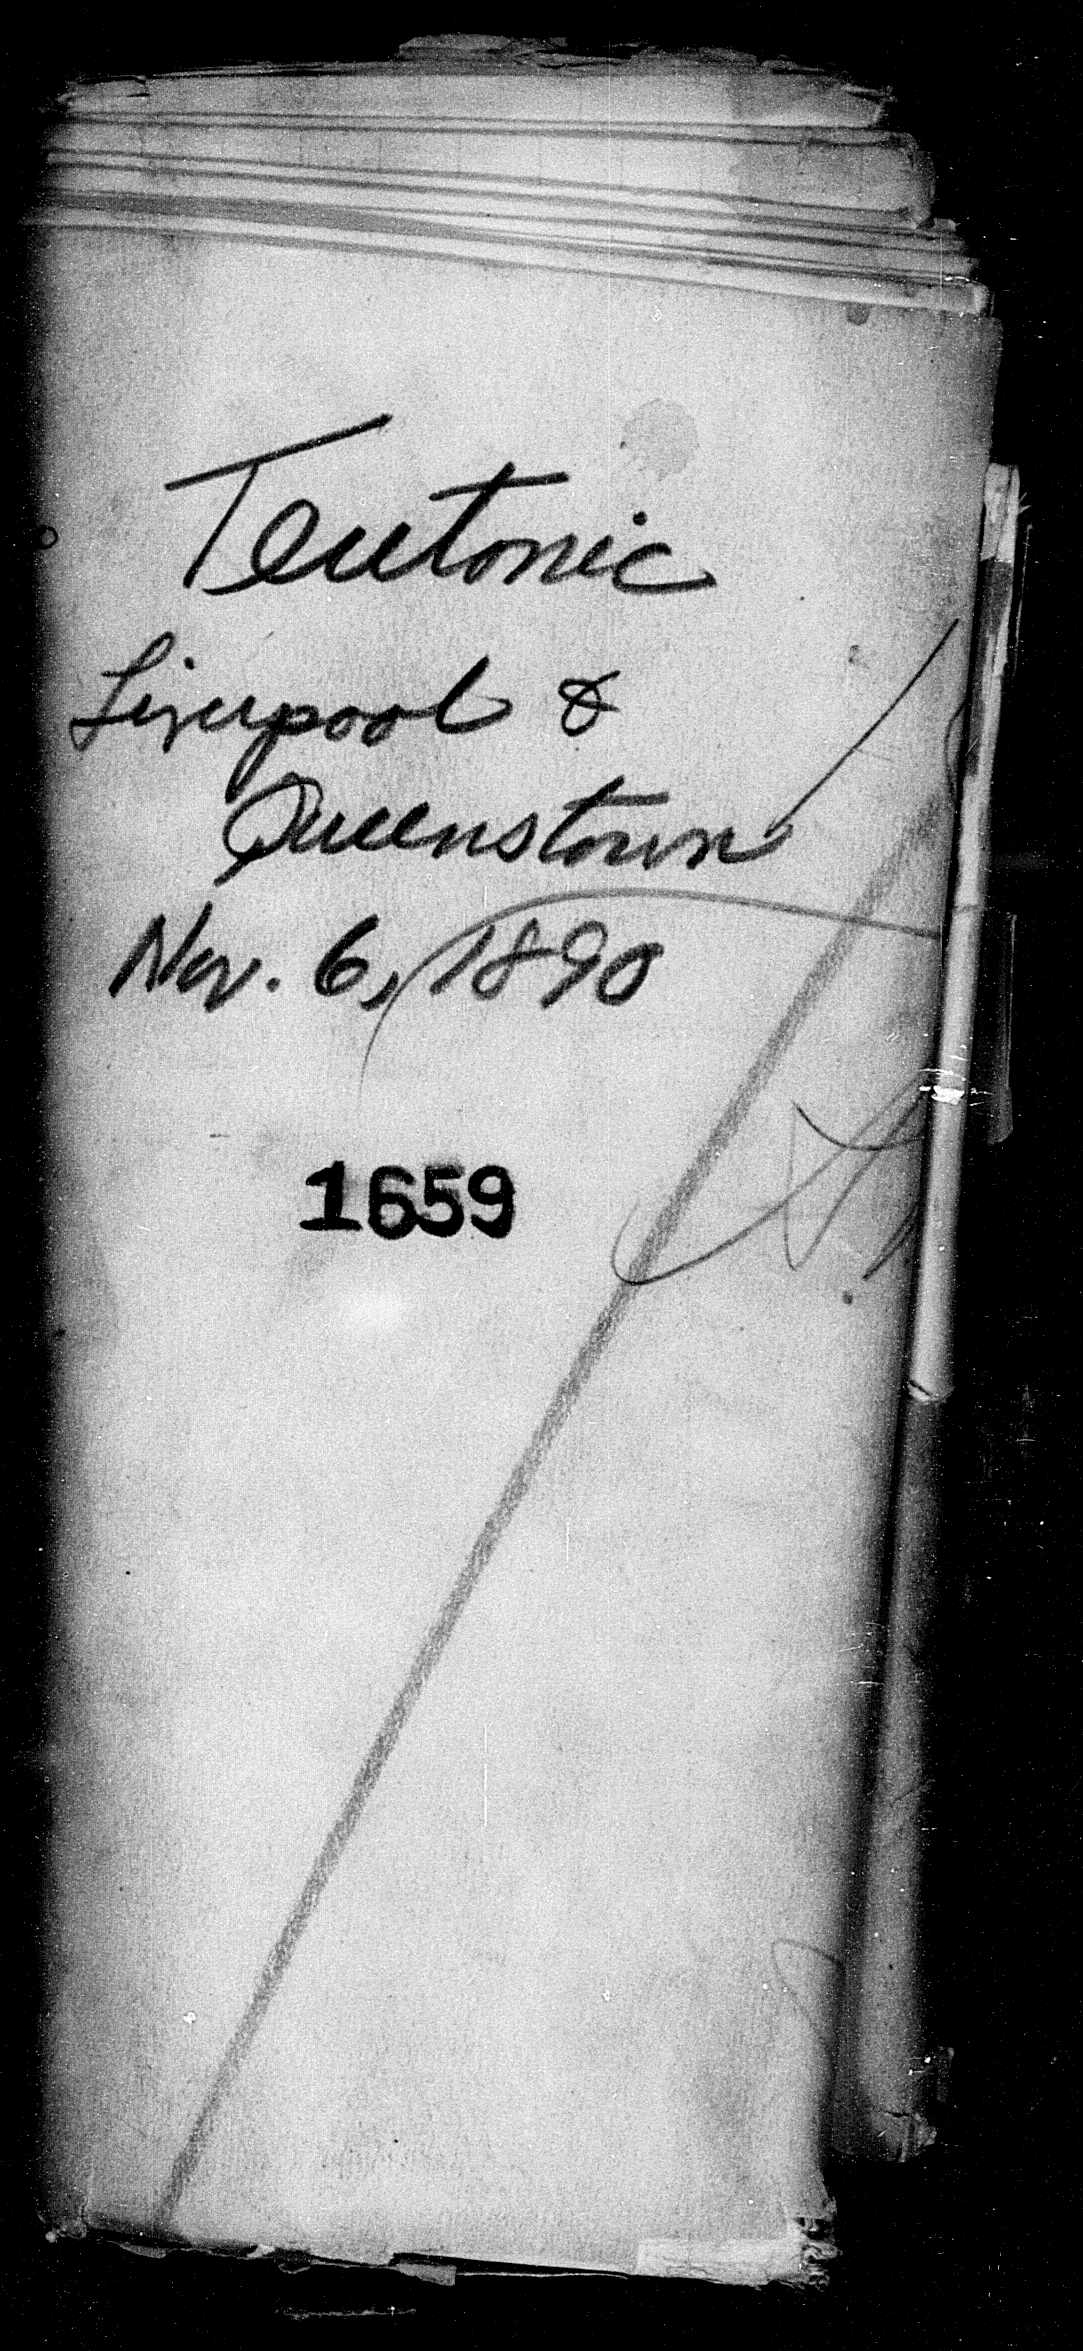 Teutonic
Liverpool &
Queenstown
Nov. 6, 1890
1659